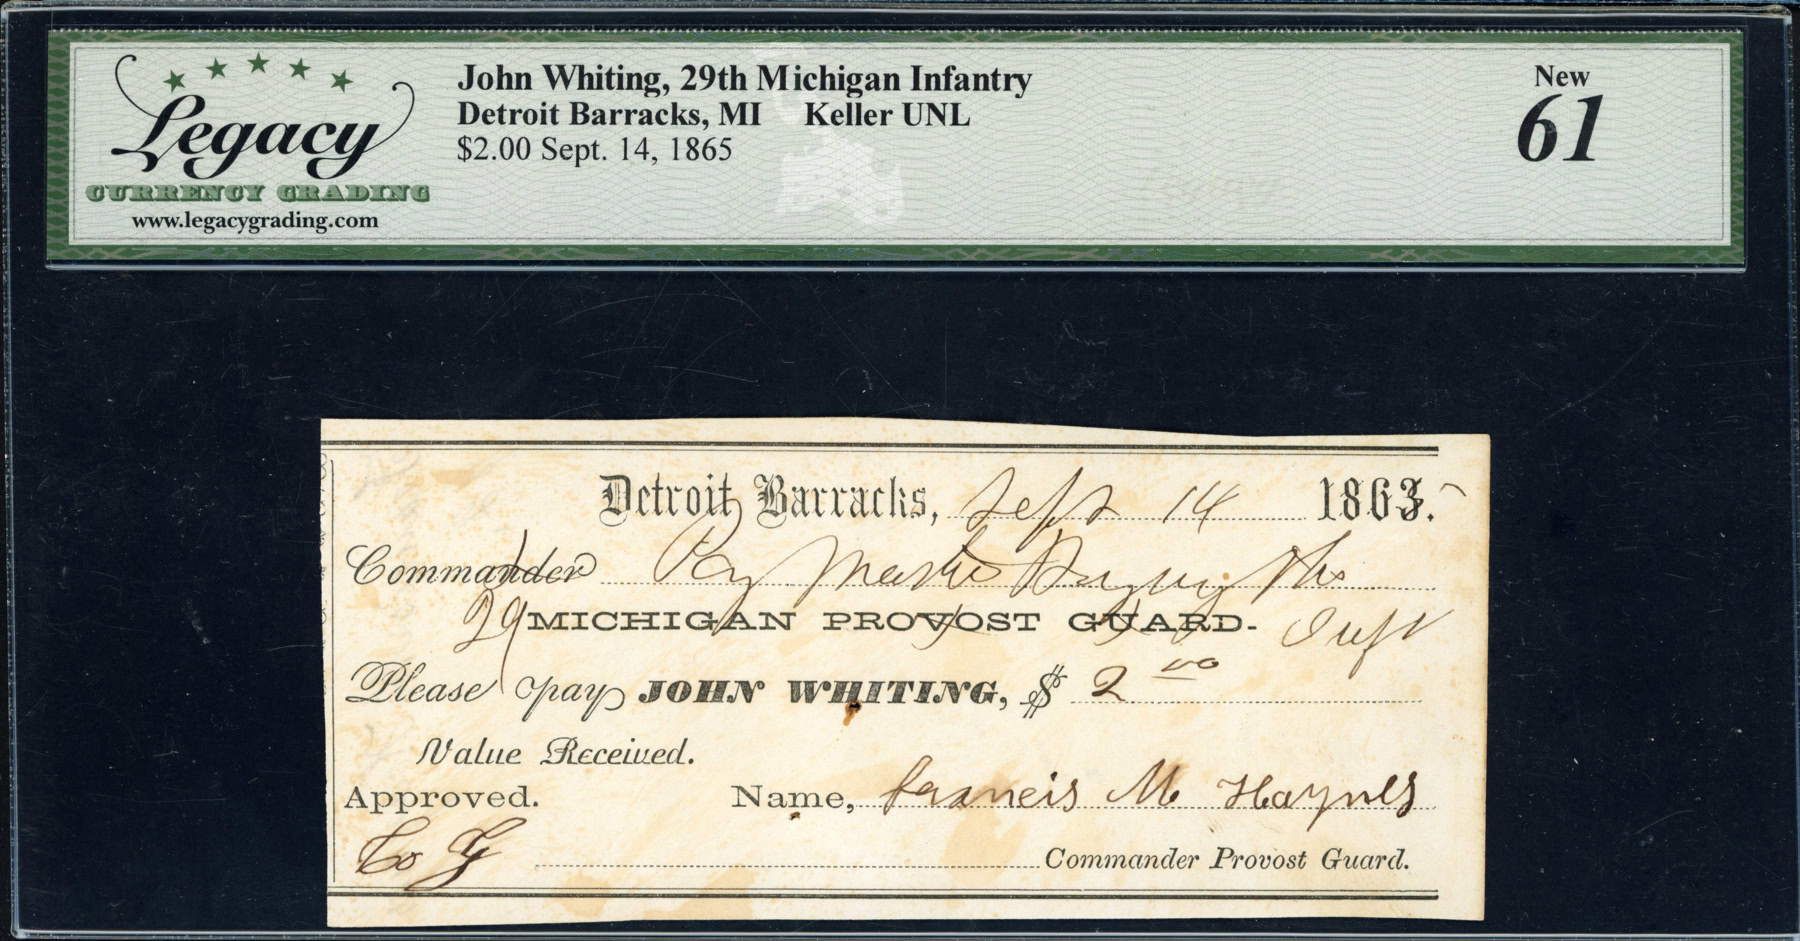 Legacy
CURRENCY GRADING
www.legacygrading.com
John Whiting, 29th Michigan Infantry
Detroit Barracks, MI Keller UNL
$2.00 Sept. 14, 1865
New
61
Detroit Barracks, Sept 14 1865.
Commander Pay Master Paying the
29 MICHIGAN PROVOST GUARD. Inft
Please pay JOHN WHITING, $ 2 00
Value Received.
Approved. Name, Francis M Haynes
Co Commander Provost Guard.